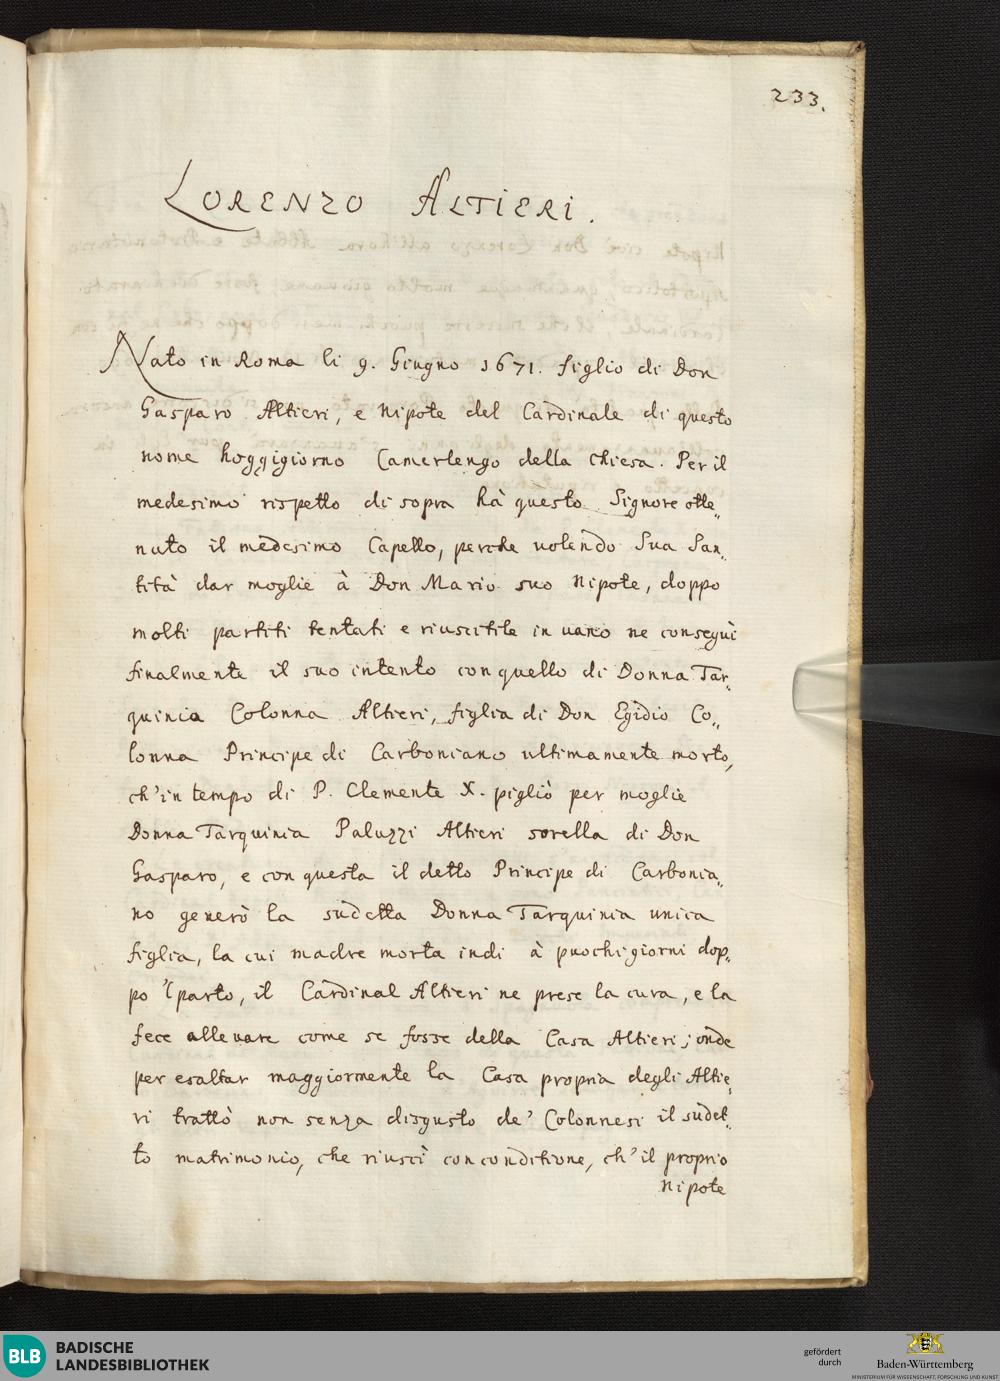 233.
LORENZO ALTIERI.
Nato in Roma li 9. Giugno 1671. figlio di Don
Gasparo Altieri, e Nipote del Cardinale di questo
nome hoggigiorno Camerlengo della chiesa. Per il
medesimo rispetto di sopra hà questo Signore otte„
nuto il medesimo Capello, perche volendo Sua San„
tità dar moglie à Don Mario suo Nipote, doppo
molti partiti tentati e riuscitile in vano ne conseguì
finalmente il suo intento con quello di Donna Tar„
quinia Colonna Altieri, figlia di Don Egidio Co„
lonna Principe di Carboniano ultimamente morto,
ch'in tempo di P. Clemente X. pigliò per moglie
Donna Tarquinia Paluzzi Altieri sorella di Don
Gasparo, e con questa il detto Principe di Carbonia„
no generò la sudetta Donna Tarquinia unica
figlia, la cui madre morta indi à puochi giorni dop„
po 'l parto, il Cardinal Altieri ne prese la cura, e la
fece allevare come se fosse della Casa Altieri; onde
per esaltar maggiormente la Casa propria degli Altie„
ri trattò non senza disgusto de' Colonnesi il sudet„
to matrimonio, che riuscì con conditione, ch'il proprio
Nipote
BLB BADISCHE
LANDESBIBLIOTHEK
gefördert
durch
Baden-Württemberg
MINISTERIUM FÜR WISSENSCHAFT, FORSCHUNG UND KUNST